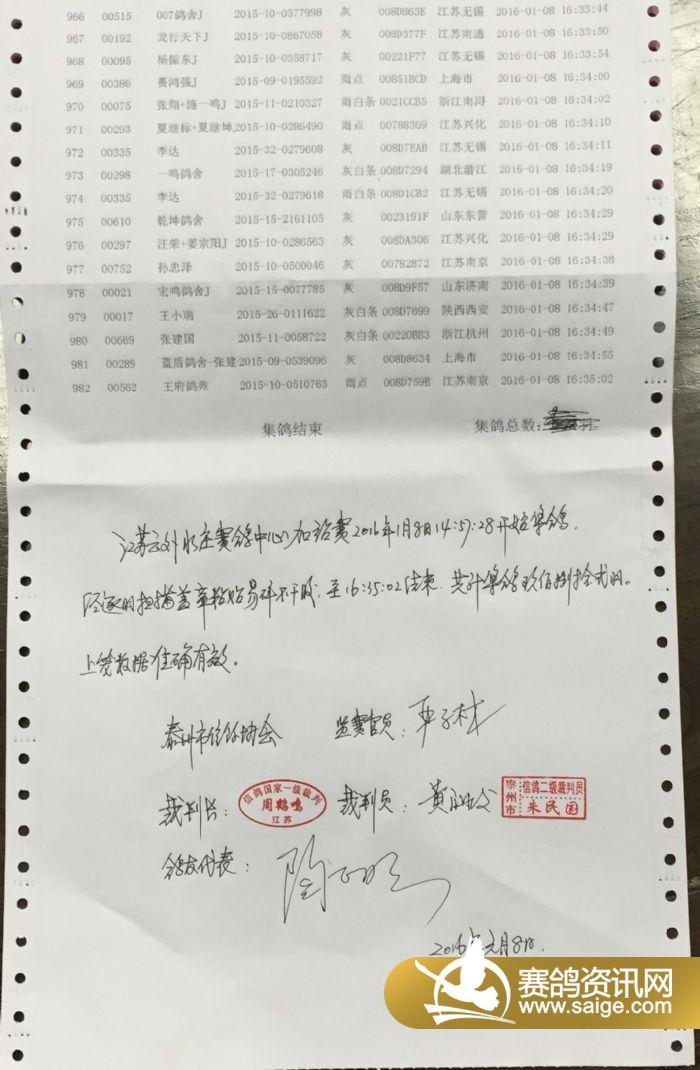 966 00515 007鸽舍J 2015-10-0377998 灰 008D863E 江苏无锡 2016-01-08 16:33:44
967 00192 龙行天下J 2015-10-0867058 灰 008D377F 江苏南通 2016-01-08 16:33:50
968 00095 杨振东J 2015-10-0358717 灰 00221F77 江苏无锡 2016-01-08 16:33:54
969 00386 黄鸿强J 2015-09-0195592 雨点 00851BCD 上海市 2016-01-08 16:34:00
970 00075 张翔+施一鸣J 2015-11-0210327 雨白条 0021CCB5 浙江南浔 2016-01-08 16:34:02
971 00293 夏继标+夏继坤 2015-10-0286490 雨点 00788309 江苏兴化 2016-01-08 16:34:10
972 00335 李达 2015-32-0279608 灰 008D7EAB 江苏无锡 2016-01-08 16:34:11
973 00298 一鸣鸽舍 2015-17-0305246 灰白条 008D7294 湖北潜江 2016-01-08 16:34:19
974 00335 李达 2015-32-0279618 雨白条 008D1CB2 江苏无锡 2016-01-08 16:34:20
975 00610 乾坤鸽舍 2015-15-2161105 灰 0023191F 山东东营 2016-01-08 16:34:29
976 00297 汪荣+姜宗阳J 2015-10-0286563 灰 008DA306 江苏兴化 2016-01-08 16:34:29
977 00752 孙忠泽 2015-10-0500046 灰 00782872 江苏南京 2016-01-08 16:34:38
978 00021 宏鸣鸽舍J 2015-15-0077785 灰 008D9F57 山东济南 2016-01-08 16:34:39
979 00017 王小瑞 2015-26-0111622 灰白条 008D7699 陕西西安 2016-01-08 16:34:47
980 00669 张建国 2015-11-0058722 灰白条 00220BB3 浙江杭州 2016-01-08 16:34:49
981 00289 蓝盾鸽舍-张建 2015-09-0539096 灰 008D8634 上海市 2016-01-08 16:34:55
982 00562 王府鸽苑 2015-10-0510763 雨点 008D759B 江苏南京 2016-01-08 16:35:02
集鸽结束 集鸽总数:
江苏云外水庄赛鸽中心加站赛2016年1月8日14:57:28开始集鸽.
经逐羽扫描盖章粘贴易碎不干胶,至16:35:02结束.共计集鸽玖佰捌拾贰羽.
上笼数据准确有效。
泰州市信鸽协会 监赛官员:
裁判长: 信鸽国家一级裁判 周鹤鸣 江苏 裁判员: 黄 泰州市 信鸽二级裁判员 朱民国
鸽友代表:
2016年元月8日.
赛鸽资讯网
www.saige.com